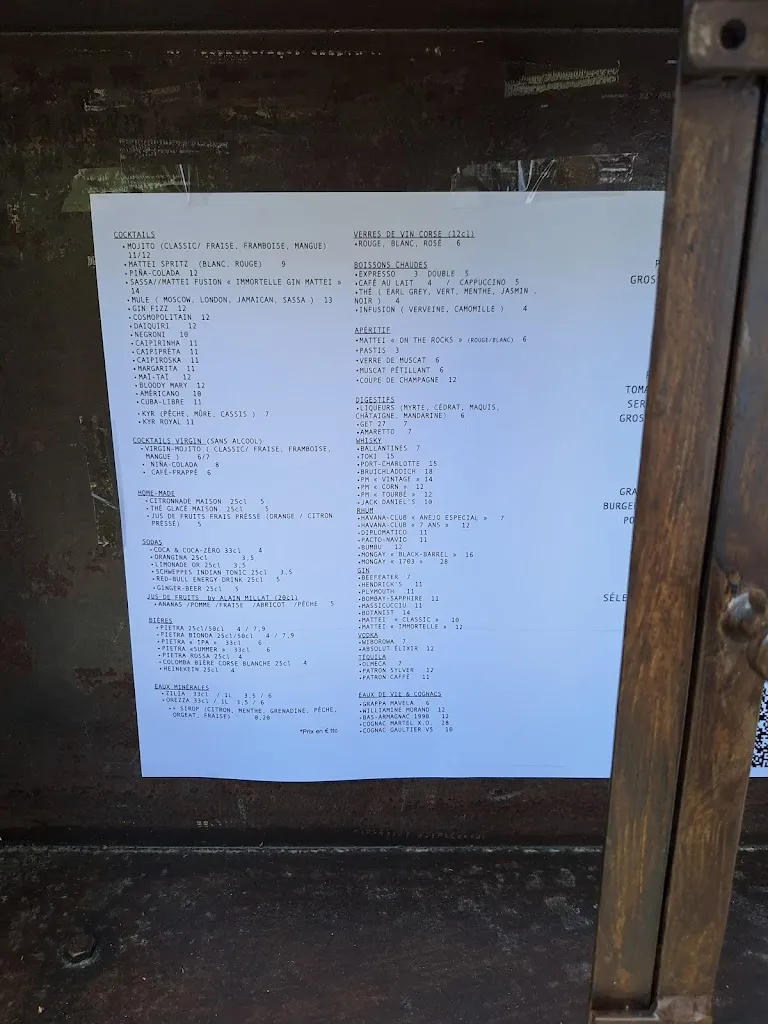 COCKTAILS
•MOJITO (CLASSIC/ FRAISE, FRAMBOISE, MANGUE)
11/12
•MATTEI SPRITZ (BLANC, ROUGE) 9
•PIÑA-COLADA 12
•SASSA//MATTEI FUSION « IMMORTELLE GIN MATTEI »
14
•MULE ( MOSCOW, LONDON, JAMAICAN, SASSA ) 13
•GIN FIZZ 12
•COSMOPOLITAIN 12
•DAÏQUIRI 12
•NEGRONI 10
•CAIPIRINHA 11
•CAIPIPRÉTA 11
•CAIPIROSKA 11
•MARGARITA 11
•MAÏ-TAÏ 12
•BLOODY MARY 12
•AMÉRICANO 10
•CUBA-LIBRE 11
•KYR (PÊCHE, MÛRE, CASSIS ) 7
•KYR ROYAL 11
COCKTAILS VIRGIN (SANS ALCOOL)
•VIRGIN-MOJITO ( CLASSIC/ FRAISE, FRAMBOISE,
MANGUE ) 6/7
• NIÑA-COLADA 8
• CAFÉ-FRAPPÉ 6
HOME-MADE
•CITRONNADE MAISON 25cl 5
•THÉ GLACÉ MAISON 25cl 5
•JUS DE FRUITS FRAIS PRESSÉ (ORANGE / CITRON
PRESSÉ) 5
SODAS
•COCA & COCA-ZÉRO 33cl 4
•ORANGINA 25cl 3.5
•LIMONADE OR 25cl 3.5
•SCHWEPPES INDIAN TONIC 25cl 3.5
•RED-BULL ENERGY DRINK 25cl 5
•GINGER-BEER 25cl 5
JUS DE FRUITS by ALAIN MILLAT (20cl)
•ANANAS /POMME /FRAISE /ABRICOT /PÊCHE 5
BIÈRES
•PIETRA 25cl/50cl 4 / 7,9
•PIETRA BIONDA 25cl/50cl 4 / 7,9
•PIETRA « IPA » 33cl 6
•PIETRA «SUMMER» 33cl 6
•PIETRA ROSSA 25cl 4
•COLOMBA BIÈRE CORSE BLANCHE 25cl 4
•HEINEKEIN 25cl 4
EAUX MINÉRALES
•ZILIA 33cl / 1L 3,5 / 6
•OREZZA 33cl / 1L 3,5 / 6
•+ SIROP (CITRON, MENTHE, GRENADINE, PÊCHE,
ORGEAT, FRAISE) 0,20
*Prix en € ttc
VERRES DE VIN CORSE (12cl)
•ROUGE, BLANC, ROSÉ 6
BOISSONS CHAUDES
•EXPRESSO 3 DOUBLE 5
•CAFÉ AU LAIT 4 / CAPPUCCINO 5
•THÉ ( EARL GREY, VERT, MENTHE, JASMIN ,
NOIR ) 4
•INFUSION ( VERVEINE, CAMOMILLE ) 4
APÉRITIF
•MATTEI « ON THE ROCKS » (ROUGE/BLANC) 6
•PASTIS 3
•VERRE DE MUSCAT 6
•MUSCAT PÉTILLANT 6
•COUPE DE CHAMPAGNE 12
DIGESTIFS
•LIQUEURS (MYRTE, CÉDRAT, MAQUIS,
CHÂTAIGNE, MANDARINE) 6
•GET 27 7
•AMARETTO 7
WHISKY
•BALLANTINES 7
•TOKI 15
•PORT-CHARLOTTE 15
•BRUICHLADDICH 18
•PM « VINTAGE » 14
•PM « CORN » 12
•PM « TOURBÉ » 12
•JACK DANIEL'S 10
RHUM
•HAVANA-CLUB « ANEJO ESPECIAL » 7
•HAVANA-CLUB « 7 ANS » 12
•DIPLOMATICO 11
•PACTO-NAVIO 11
•BUMBU 12
•MONGAY «BLACK-BARREL» 16
•MONGAY « 1703 » 28
GIN
•BEEFEATER 7
•HENDRICK'S 11
•PLYMOUTH 11
•BOMBAY-SAPPHIRE 11
•MASSICUCCIU 11
•BOTANIST 14
•MATTEI « CLASSIC » 10
•MATTEI « IMMORTELLE » 12
VODKA
•WIBOROWA 7
•ABSOLUT ÉLIXIR 12
TÉQUILA
•OLMECA 7
•PATRON SYLVER 12
•PATRON CAFFÉ 11
EAUX DE VIE & COGNACS
•GRAPPA MAVELA 6
•WILLIAMINE MORAND 12
•BAS-ARMAGNAC 1998 12
•COGNAC MARTEL X.O. 28
•COGNAC GAULTIER VS 10
GROS
TOMA
SER
GROS
GRA
BURGE
PO
SÉLE